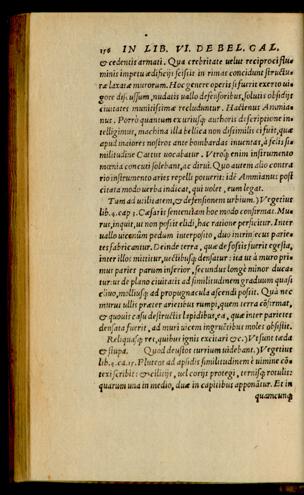 156 IN LIB. VI. DE BEL. GAL.
& cedentis armati. Qua crebritate uelut reciproci flu-
minis impetu ædificijs scissis in rimas concidunt structu-
ræ laxatæ murorum. Hoc genere operis si fuerit exerto ui-
gore discussum, nudatis uallo defensoribus, solutis obsidijs
ciuitates munitissimæ recluduntur. Hactenus Ammia-
nus. Porrò quantum ex uriusq; authoris descriptione in-
telligimus, machina illa bellica non dissimilis ei fuit, quæ
apud maiores nostros ante bombardas inuentas, à felis si-
militudine Cattus uocabatur. Vtroq; enim instrumento
mœnia concuti solebant, ac dirui. Quo autem alio contra
rio instrumento aries repelli potuerit: idē Ammianus post
citata modo uerba indicat, qui uolet, eum legat.
Tum ad utilitatem, & defensionem urbium.) Vegetius
lib. 4. cap 3. Cæsaris sententiam hoc modo confirmat. Mu-
rus, inquit, ut non possit elidi, hac ratione perficitur. Inter
uallo uicenûm pedum interposito, duo intrinsecus parie-
tes fabricantur. Deinde terra, quæ de fossis fuerit egesta,
inter illos mittitur, uectibusq; densatur: ita ut à muro pri-
mus paries parum inferior, secundus longè minor duca-
tur: ut de plano ciuitatis ad similitudinem graduum quasi
cliuo, molliusq; ad propugnacula ascendi possit. Quia nec
murus ullis præter arietibus rumpi, quem terra cōfirmat,
& quouis casu destructis lapidibus, ea, quæ inter parietes
densata fuerit, ad muri uicem ingruētibus moles obsistit.
Reliquasq; res, quibus ignis excitari &c.) Vt sunt tæda
& stupa. Quod deustos turrium uidebant.) Vegetius
lib. 4. ca. 15. Pluteos ad apsidis similitudinem è uimine cō-
texi scribit: & cilicijs, uel corijs protegi, ternisq; rotulis:
quarum una in medio, duæ in capitibus apponātur. Et in
quamcunq;